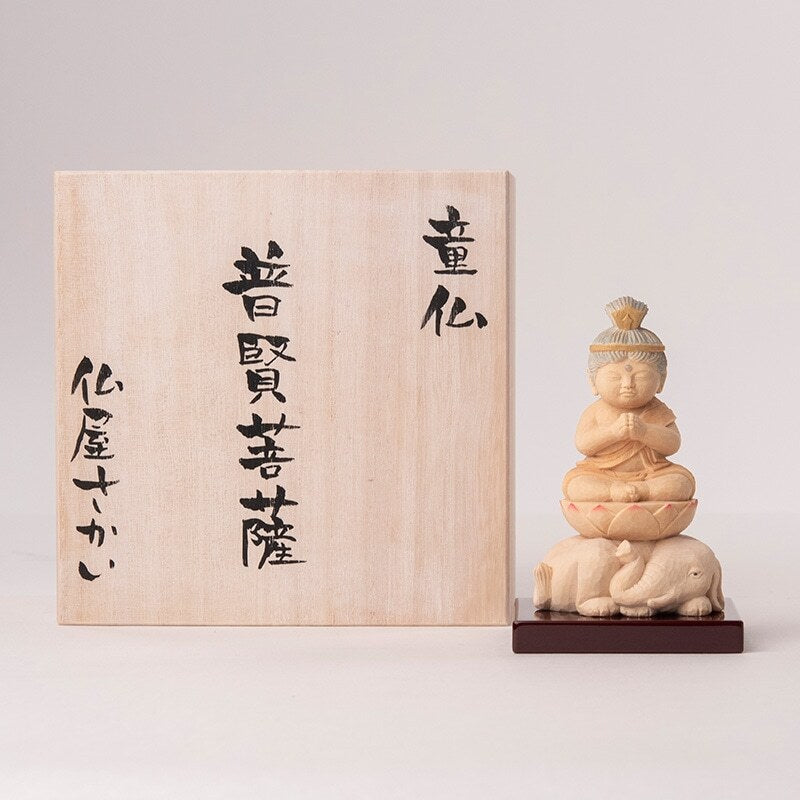 童仏
普賢菩薩
仏屋さかい